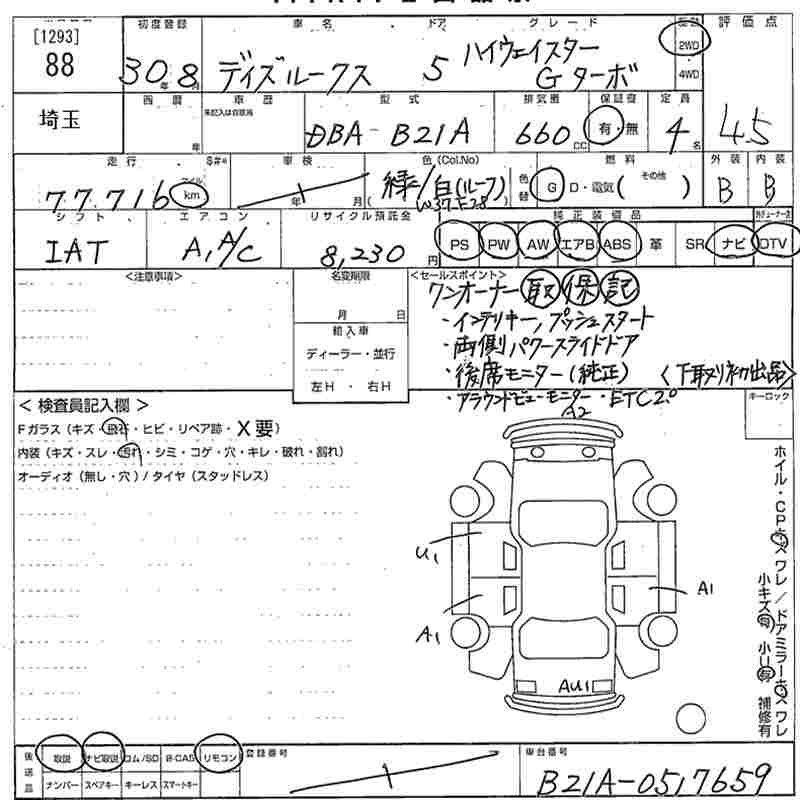 [1293]
88
初度登録 車名 ドア グレード 駆動 評価点
30年8月 デイズルークス 5 ハイウェイスター Gターボ 2WD 4WD 4.5
埼玉
西暦 車歴 型式 排気量 保証書 定員
年 未記入は自家用 DBA-B21A 660cc 有・無 4名
走行 車検 色(Col.No) 色替 燃料 外装 内装
77,716 マイル km 年 月 緑/白(ルーフ) G D・電気( その他 ) B B
シフト エアコン リサイクル預託金 純正装備品
IAT A,A/C 8,230円 PS PW AW エアB ABS 革 SR ナビ DTV
<注意事項> 名変期限 <セールスポイント>
月 日
輸入車
ディーラー・並行
左H・右H
ワンオーナー 取 保 記
・インテリキー,プッシュスタート
・両側パワースライドドア
・後席モニター(純正) <下取り初出品>
・アラウンドビューモニター・ETC2.0
キーロック
<検査員記入欄>
Fガラス(キズ・飛石・ヒビ・リペア跡・X要)
内装(キズ・スレ・汚れ・シミ・コゲ・穴・キレ・破れ・割れ)
オーディオ(無し・穴)/タイヤ(スタッドレス)
A2
U1
A1
A1
AU1
ホイル・CPキズ ワレ/ドアミラーキズ ワレ
小キズ有 小U有 補修有
後送品 取説 ナビ取説 コム/SD B-CAS リモコン
ナンバー スペアキー キーレス スマートキー
登録番号
車台番号
B21A-0517659